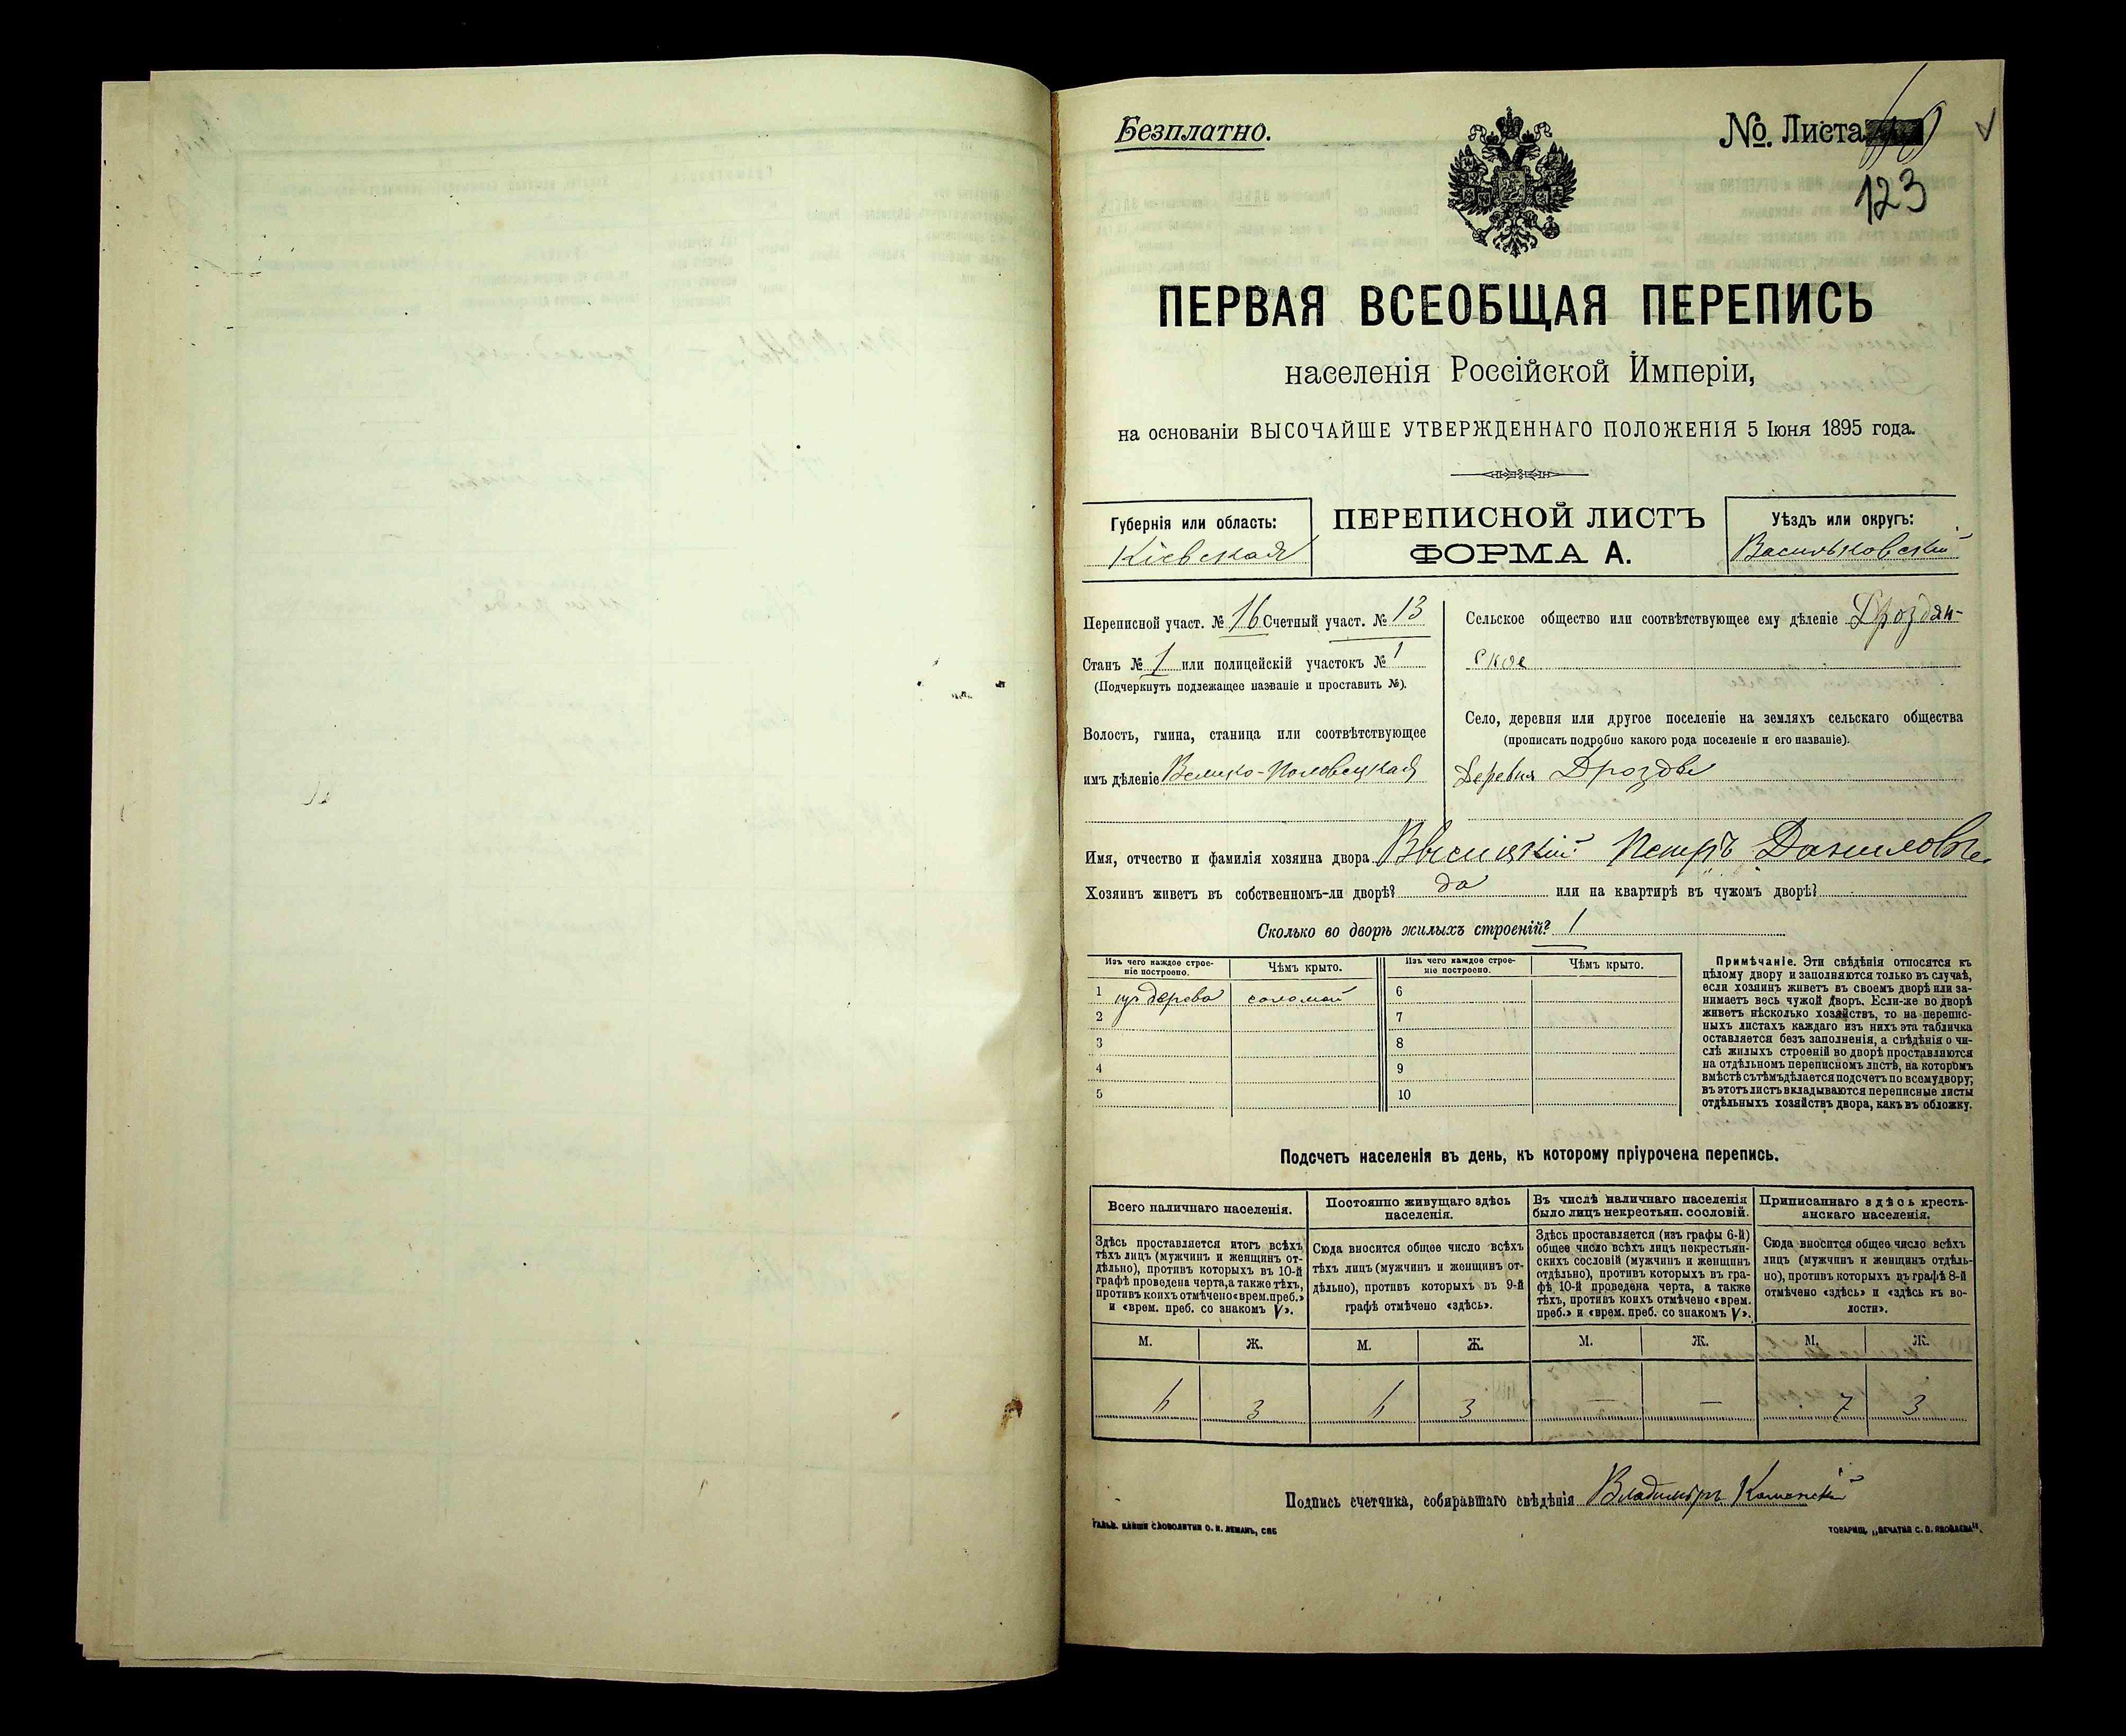 Безплатно.
№. Листа
123
ПЕРВАЯ ВСЕОБЩАЯ ПЕРЕПИСЬ
населенія Россійской Имперіи,
на основаніи ВЫСОЧАЙШЕ УТВЕРЖДЕННАГО ПОЛОЖЕНІЯ 5 Іюня 1895 года.
Губернія или область:
Кіевская
ПЕРЕПИСНОЙ ЛИСТЪ
ФОРМА А.
Уѣздъ или округъ:
Васильковскій
Переписной участ. № 16 Счетный участ. № 13
Станъ № 1 или полицейскій участокъ № 1
(Подчеркнуть подлежащее названіе и проставить №).
Волость, гмина, станица или соотвѣтствующее
имъ дѣленіе Велико-Половецкая
Сельское общество или соотвѣтствующее ему дѣленіе Дроздян-
ское
Село, деревня или другое поселеніе на земляхъ сельскаго общества
(прописать подробно какого рода поселеніе и его названіе).
Деревня Дрозды
Имя, отчество и фамилія хозяина двора Высицкій Петръ Данилов
Хозяинъ живетъ въ собственномъ-ли дворѣ? да или на квартирѣ въ чужомъ дворѣ?
Сколько во дворѣ жилыхъ строеній? 1
Изъ чего каждое строе-
ніе построено.
Чѣмъ крыто.
Изъ чего каждое строе-
ніе построено.
Чѣмъ крыто.
1 из дерева соломой 6
2 7
3 8
4 9
5 10
Примѣчаніе. Эти свѣдѣнія относятся къ
цѣлому двору и заполняются только въ случаѣ,
если хозяинъ живетъ въ своемъ дворѣ или за-
нимаетъ весь чужой дворъ. Если-же во дворѣ
живетъ нѣсколько хозяйствъ, то на перепис-
ныхъ листахъ каждаго изъ нихъ эта табличка
оставляется безъ заполненія, а свѣдѣнія о чи-
слѣ жилыхъ строеній во дворѣ проставляются
на отдѣльномъ переписномъ листѣ, на которомъ
вмѣстѣ съ тѣмъ дѣлается подсчетъ по всему двору;
въ этотъ листъ вкладываются переписные листы
отдѣльныхъ хозяйствъ двора, какъ въ обложку.
Подсчетъ населенія въ день, къ которому пріурочена перепись.
Всего наличнаго населенія.
Постоянно живущаго здѣсь
населенія.
Въ числѣ наличнаго населенія
было лицъ некрестьян. сословій.
Приписаннаго здѣсь кресть-
янскаго населенія.
Здѣсь проставляется итогъ всѣхъ
тѣхъ лицъ (мужчинъ и женщинъ от-
дѣльно), противъ которыхъ въ 10-й
графѣ проведена черта, а также тѣхъ,
противъ коихъ отмѣчено «врем. преб.»
и «врем. преб. со знакомъ V».
Сюда вносится общее число всѣхъ
тѣхъ лицъ (мужчинъ и женщинъ от-
дѣльно), противъ которыхъ въ 9-й
графѣ отмѣчено «здѣсь».
Здѣсь проставляется (изъ графы 6-й)
общее число всѣхъ лицъ некрестьян-
скихъ сословій (мужчинъ и женщинъ
отдѣльно), противъ которыхъ въ гра-
фѣ 10-й проведена черта, а также
тѣхъ, противъ коихъ отмѣчено «врем.
преб.» и «врем. преб. со знакомъ V».
Сюда вносится общее число всѣхъ
лицъ (мужчинъ и женщинъ отдѣль-
но), противъ которыхъ въ графѣ 8-й
отмѣчено «здѣсь» и «здѣсь къ во-
лости».
М. Ж. М. Ж. М. Ж. М. Ж.
6 3 6 3 — — 7 3
Подпись счетчика, собиравшаго свѣдѣнія Владимиръ
ТОВАРИЩ. „ПЕЧАТНЯ С. П. ЯКОВЛЕВА".